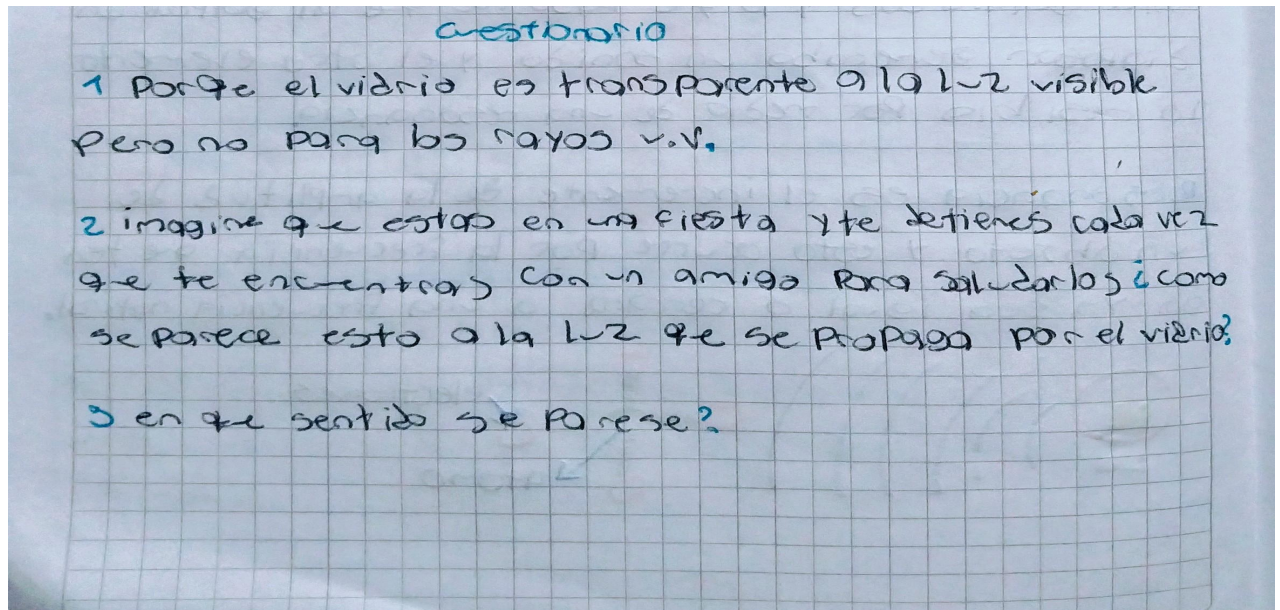 cuestionario
1 Porqe el vidrio es transparente a la luz visible
Pero no para los rayos u.v.
2 imagine que estas en una fiesta y te detienes cada vez
que te encuentras con un amigo para saludarlos ¿como
se parece esto a la luz qe se propaga por el vidrio?
3 en que sentido se parese?